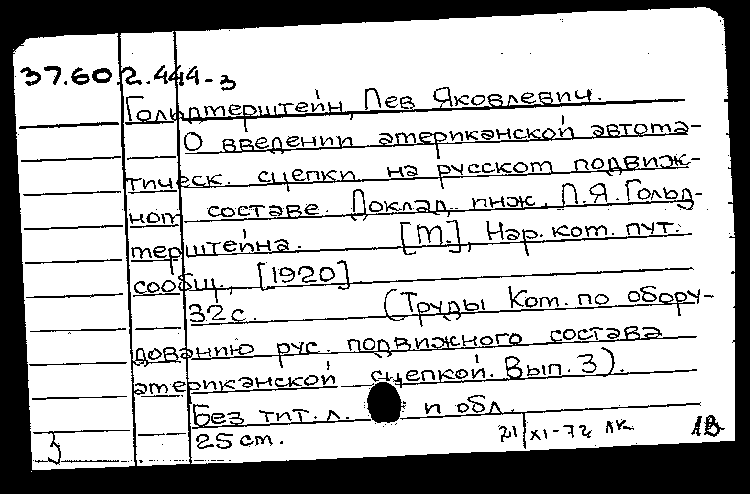 37.60.2.444-3
Гольдмерштейн, Лев Яковлевич.
О введении американской автома-
тическ. сцепки на русском подвиж-
ном составе. Доклад инж. Л.Я. Гольд-
мерштейна. [М.], Нар. ком. пут.
сообщ., [1920]
32 с. (Труды Ком. по обору-
дованию рус. подвижного состава
американской сцепкой. Вып. 3).
Без тит. л. и обл.
25 см.
21/XI-72 лк
1В
3